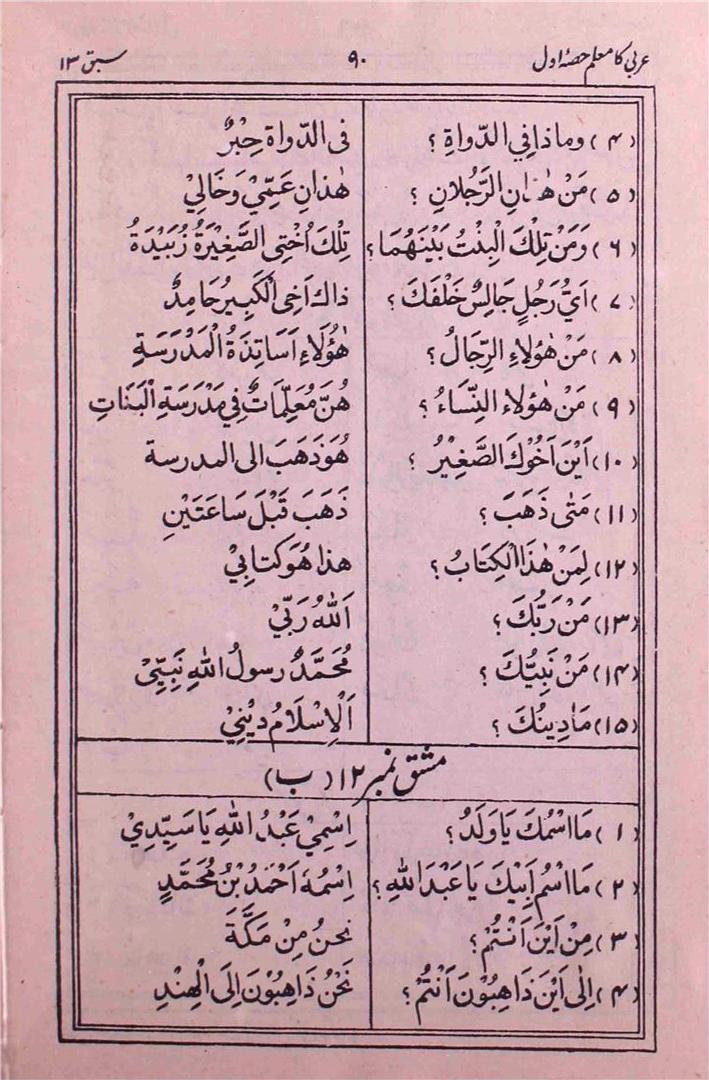 عربی کا معلم حصۂ اول ۹۰ سبق ۱۳
(۴) وماذا فِي الدَّواةِ ؟ فی الدَّواة حِبْرٌ
(۵) مَنْ هٰذانِ الرَّجُلانِ ؟ هٰذانِ عَمِّيْ وَخَالِيْ
(۶) وَمَنْ تِلْكَ الْبِنْتُ بَيْنَهُمَا ؟ تِلْكَ اُخْتِی الصَّغِيْرَةُ زُبَيْدَةُ
(۷) اَيُّ رَجُلٍ جَالِسٌ خَلْفَكَ ؟ ذاك اَخِی الْكَبِيرُ حَامِدٌ
(۸) مَنْ هٰؤُلاءِ الرِّجَالُ ؟ هٰؤُلَاءِ اَسَاتِذَةُ الْمَدْرَسَةِ
(۹) مَنْ هٰؤلاء النِّسَاءُ ؟ هُنَّ مُعَلِّمَاتٌ فِي مَدْرَسَةِ الْبَنَاتِ
(۱۰) اَيْنَ اَخُوْكَ الصَّغِيْرُ ؟ هُوَ ذَهَبَ الی المدرسة
(۱۱) مَتٰی ذَهَبَ ؟ ذَهَبَ قَبْلَ سَاعَتَيْنِ
(۱۲) لِمَنْ هٰذَا الْكِتَابُ ؟ هذا هُوَ كتابِيْ
(۱۳) مَنْ رَبُّكَ ؟ اَللهُ رَبِّيْ
(۱۴) مَنْ نَبِيُّكَ ؟ مُحَمَّدٌ رسولُ اللهِ نَبِيِّيْ
(۱۵) مَادِينُكَ ؟ اَلْاِسْلَامُ دِيْنِيْ
مشق نمبر ۱۲ (ب)
(۱) مَا اسْمُكَ يَا وَلَدُ ؟ اِسْمِيْ عَبْدُ اللهِ يَا سَيِّدِيْ
(۲) مَا اسْمُ اَبِيْكَ يَا عَبْدَ اللهِ ؟ اِسْمُهٗ اَحْمَدُ بْنُ مُحَمَّدٍ
(۳) مِنْ اَيْنَ اَنْتُمْ ؟ نحنُ مِنْ مَكَّةَ
(۴) اِلٰی اَيْنَ ذَاهِبُوْنَ اَنْتُمْ ؟ نَحْنُ ذَاهِبُوْنَ اِلَی الْهِنْدِ